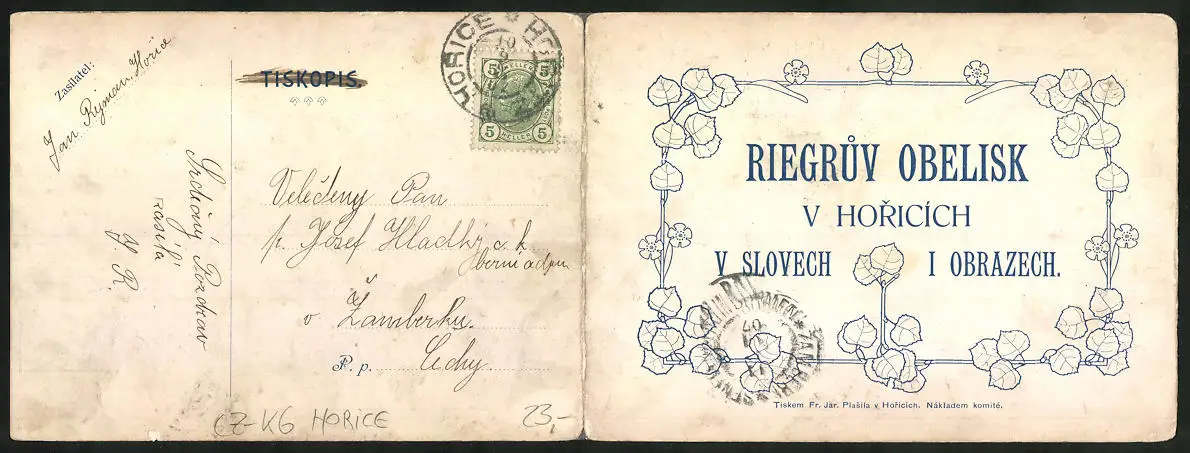 Zasílatel:
Jan Rýman Hořice
TISKOPIS.
HOŘICE
5 5
HELLER
5 HELLER 5
Srdečný Pozdrav
zasílá
J R.
Velečteny Pan
p. Josef Hladký c. k.
berní adjun
v Žamberku.
P. p. Čechy.
CZ-KG HOŘICE
23,-
RIEGRŮV OBELISK
V HOŘICÍCH
V SLOVECH I OBRAZECH.
Tiskem Fr. Jar. Plašila v Hořicích. Nákladem komité.